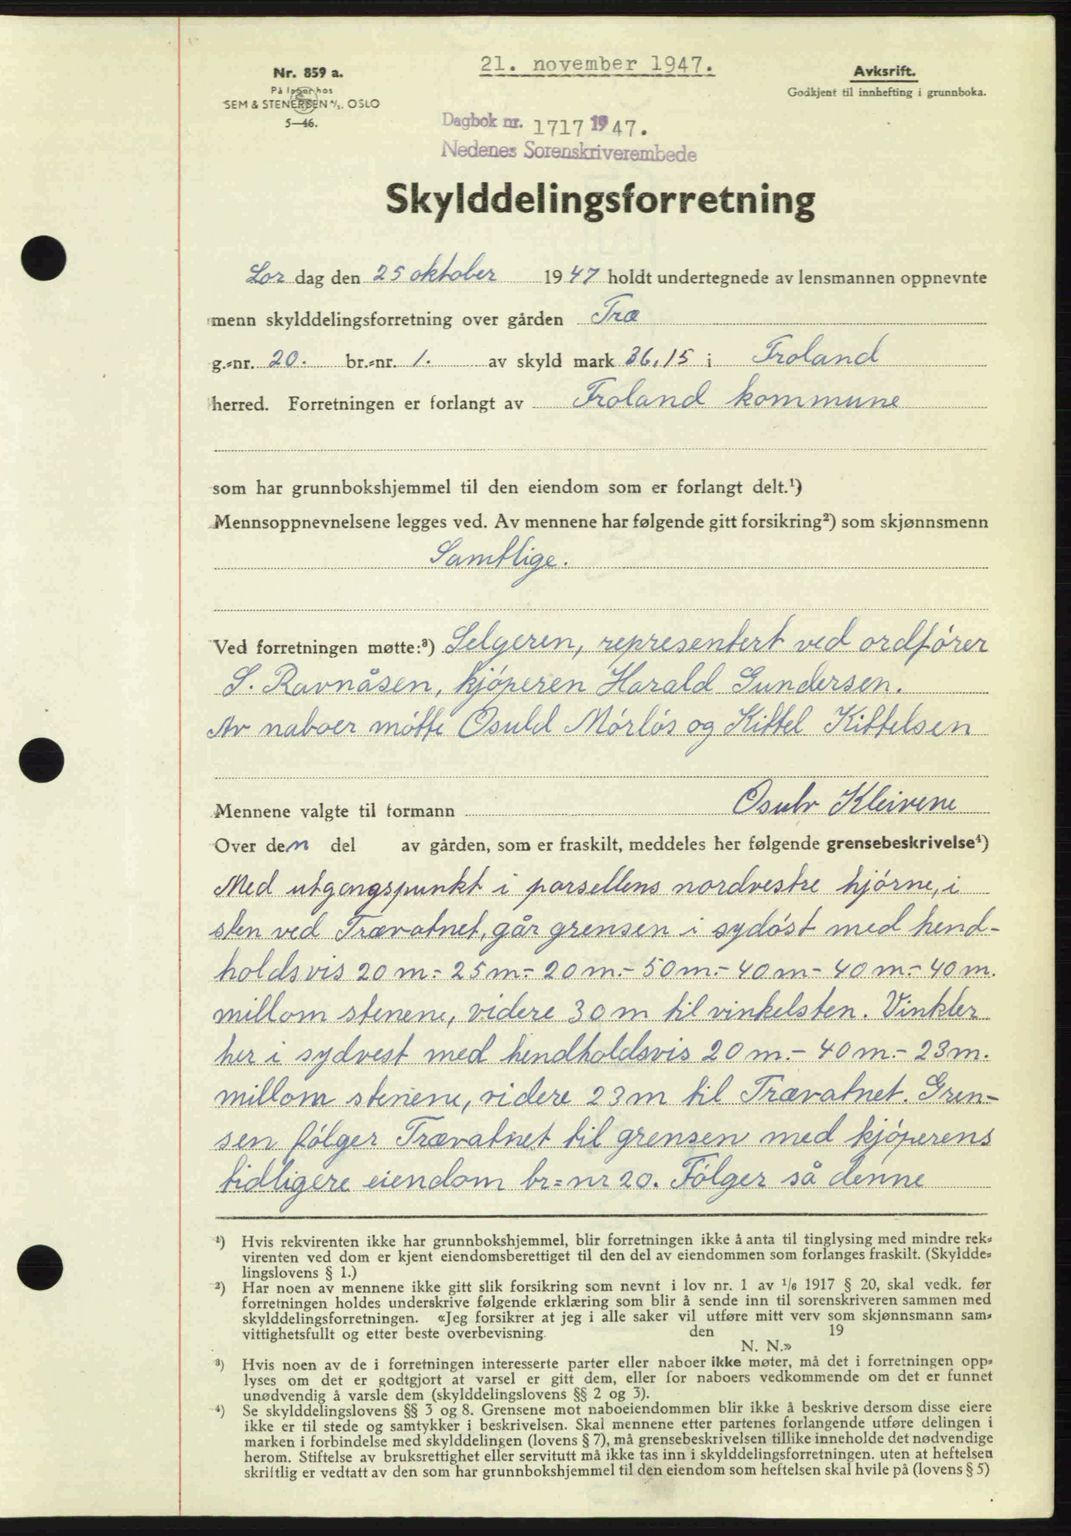 21. november 1947.
Nr. 859 a.
På lager hos
SEM & STENERSEN A/S. OSLO
5—46.
Avksrift.
Godkjent til innhefting i grunnboka.
Dagbok nr. 1717 1947.
Nedenes Sorenskriverembede
Skylddelingsforretning
Lør dag den 25 oktober 1947 holdt undertegnede av lensmannen oppnevnte
menn skylddelingsforretning over gården Træ
g.=nr. 20. br.=nr. 1. av skyld mark 36,15 i Froland
herred. Forretningen er forlangt av Froland kommune
som har grunnbokshjemmel til den eiendom som er forlangt delt.¹)
Mennsoppnevnelsene legges ved. Av mennene har følgende gitt forsikring²) som skjønnsmenn
Samtlige.
Ved forretningen møtte:³) Selgeren, representert ved ordfører
S. Ravnåsen, kjøperen Harald Gundersen.
Av naboer møtte Osuld Mørløs og Kittel Kittelsen
Mennene valgte til formann Osulv Kleivene
Over den del av gården, som er fraskilt, meddeles her følgende grensebeskrivelse⁴)
Med utgangspunkt i parsellens nordvestre hjørne, i
sten ved Trævatnet, går grensen i sydøst med hend-
holdsvis 20 m.- 25 m- 20 m.- 50 m.- 40 m- 40 m.- 40 m.
millom stenene, videre 30 m til vinkelsten. Vinkler
her i sydvest med hendholdsvis 20 m.- 40 m.- 23 m.
millom stenene, videre 23 m til Trævatnet. Gren-
sen følger Trævatnet til grensen med kjøperens
tidligere eiendom br=nr 20. Følger så denne
¹) Hvis rekvirenten ikke har grunnbokshjemmel, blir forretningen ikke å anta til tinglysing med mindre rek=
virenten ved dom er kjent eiendomsberettiget til den del av eiendommen som forlanges fraskilt. (Skyldde=
lingslovens § 1.)
²) Har noen av mennene ikke gitt slik forsikring som nevnt i lov nr. 1 av ¹/₆ 1917 § 20, skal vedk. før
forretningen holdes underskrive følgende erklæring som blir å sende inn til sorenskriveren sammen med
skylddelingsforretningen. «Jeg forsikrer at jeg i alle saker vil utføre mitt verv som skjønnsmann sam=
vittighetsfullt og etter beste overbevisning. den 19
N. N.»
³) Hvis noen av de i forretningen interesserte parter eller naboer ikke møter, må det i forretningen opp=
lyses om det er godtgjort at varsel er gitt dem, eller for naboers vedkommende om det er funnet
unødvendig å varsle dem (skylddelingslovens §§ 2 og 3).
⁴) Se skylddelingslovens §§ 3 og 8. Grensene mot naboeiendommen blir ikke å beskrive dersom disse eiere
ikke er til stede og samtykker i beskrivelsen. Skal mennene etter partenes forlangende utføre delingen i
marken i forbindelse med skylddelingen (lovens § 7), må grensebeskrivelsen tillike inneholde det nødvendige
herom. Stiftelse av bruksrettighet eller servitutt må ikke tas inn i skylddelingsforretningen. uten at heftelsen
skriftlig er vedtatt av den som har grunnbokshjemmel til den eiendom som heftelsen skal hvile på (lovens § 5)